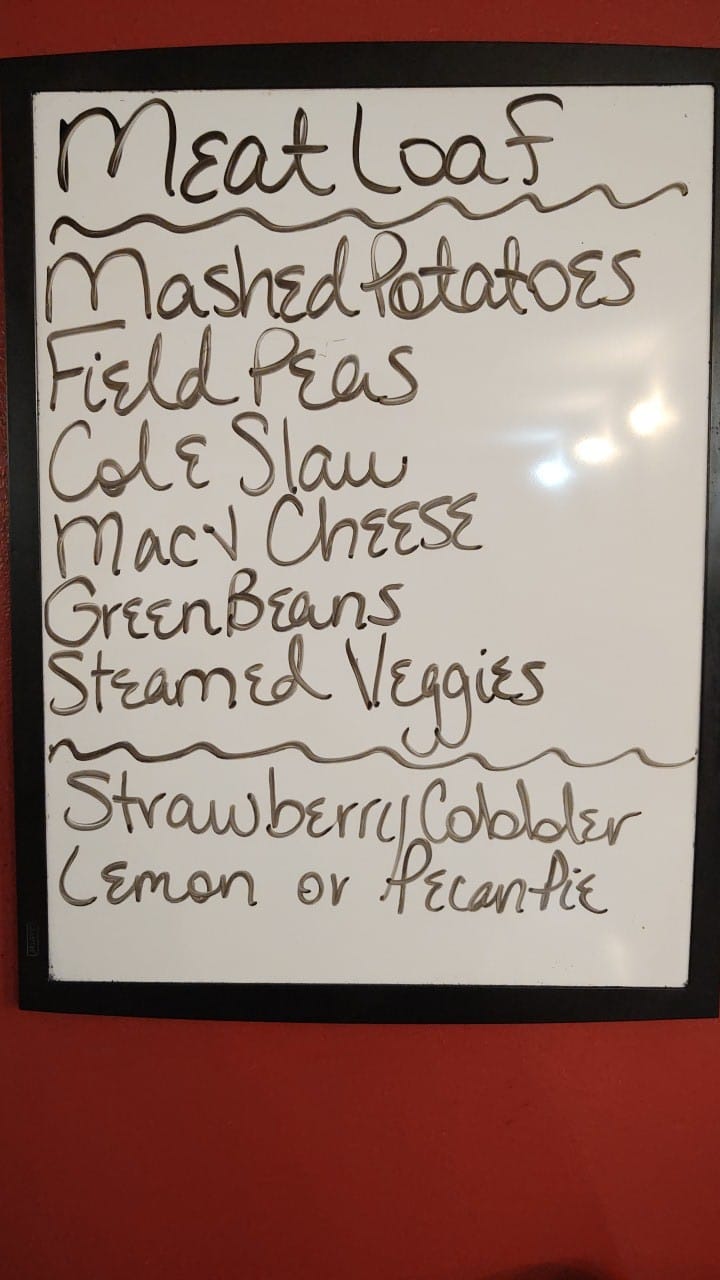 Meat Loaf
Mashed Potatoes
Field Peas
Cole Slaw
Mac Cheese
Green Beans
Steamed Veggies
Strawberry Cobbler
Lemon or Pecan Pie